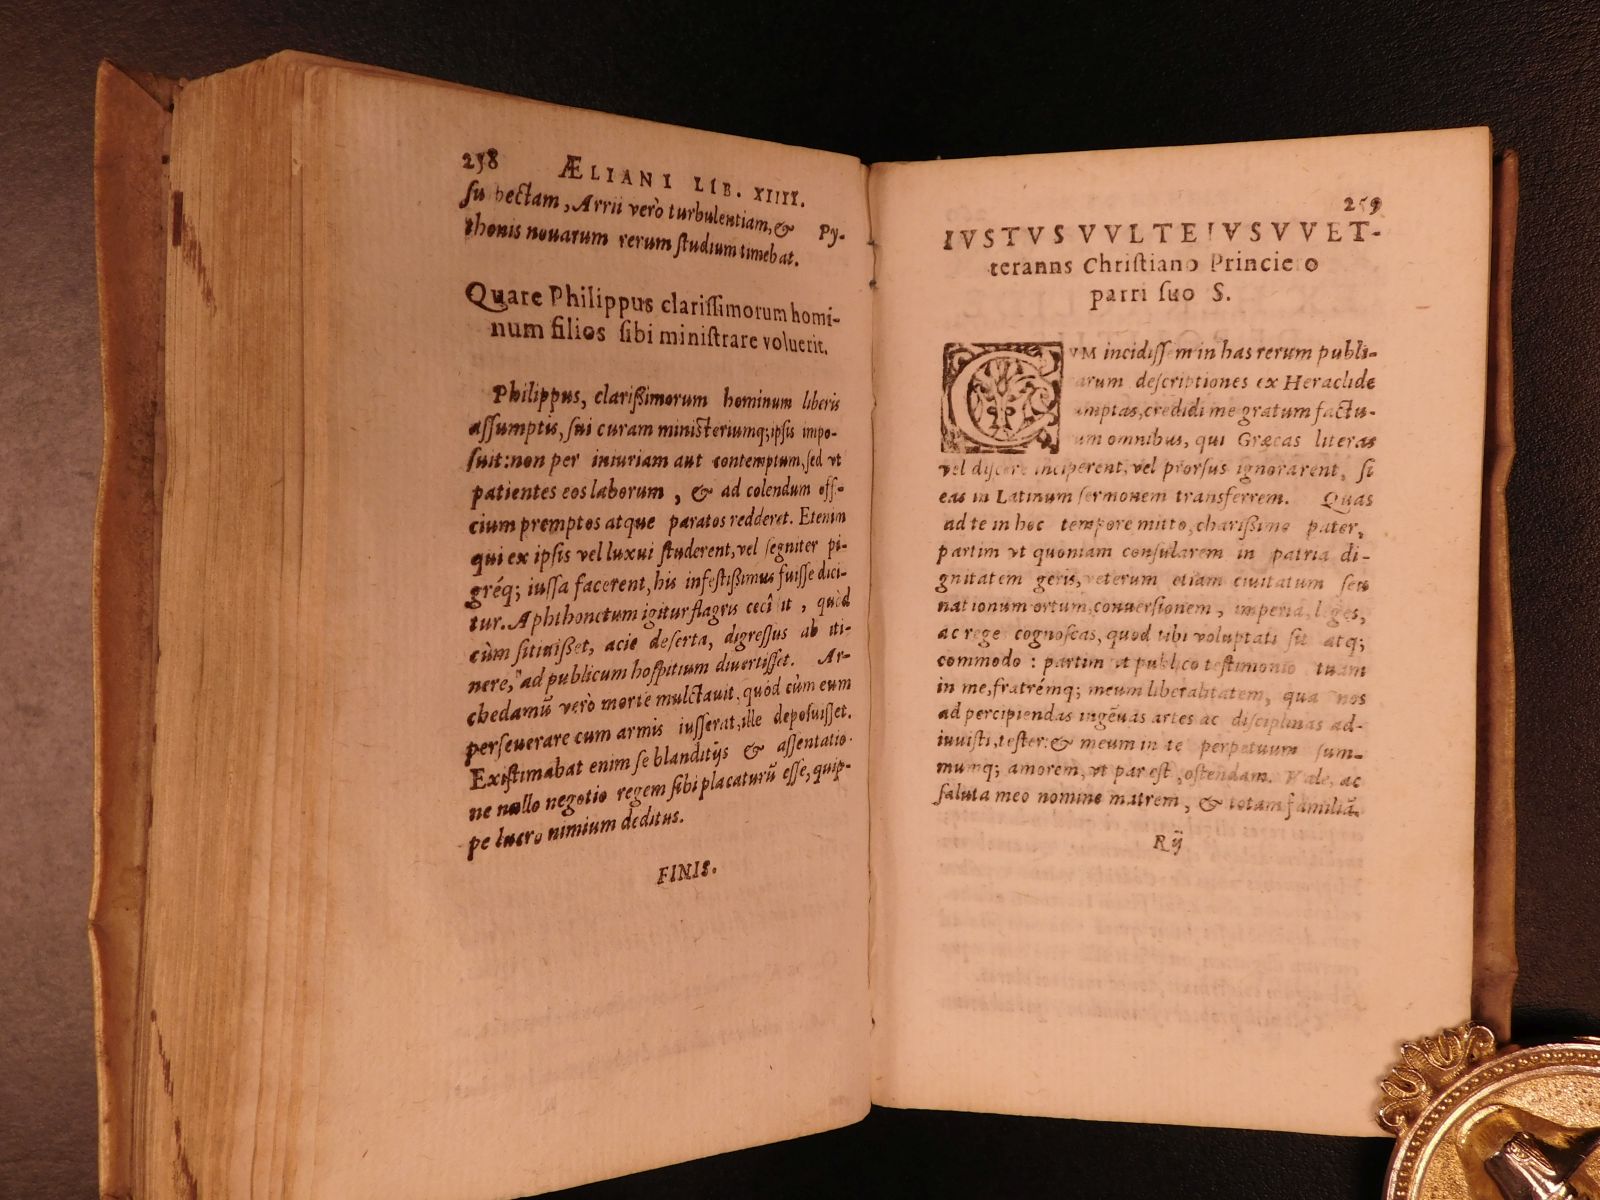 258 ÆLIANI LIB. XIIII.
su bectam, Arrii verò turbulentiam, & Py-
thonis nouarum rerum studium timebat.
Quare Philippus clarissimorum homi-
num filios sibi ministrare voluerit.
Philippus, clarißimorum hominum liberis
assumptis, sui curam ministeriumq; ipsis impo-
suit: non per iniuriam aut contemptum, sed vt
patientes eos laborum, & ad colendum offi-
cium premptos atque paratos redderet. Etenim
qui ex ipsis vel luxui studerent, vel segniter pi-
gréq; iussa facerent, his infestißimus fuisse dici-
tur. Aphthonetum igitur flagris cecîit, quòd
cùm sitiuisset, acie deserta, digressus ab iti-
nere, ad publicum hospitium diuertisset. Ar-
chedamū verò morte mulctauit, quòd cùm eum
perseuerare cum armis iusserat, ille deposuisset.
Existimabat enim se blanditijs & assentatio-
ne nullo negotio regem sibi placaturū esse, quip-
pe lucro nimium deditus.
FINIS.
259
IVSTVS VVLTEIVS VVET-
teranns Christiano Princie o
parri suo S.
CVM incidissem in has rerum publi-
carum descriptiones ex Heraclide
umptas, credidi me gratum factu-
um omnibus, qui Græcas literas
vel discere inciperent, vel prorsus ignorarent, si
eas in Latinum sermonem transferrem. Quas
ad te in hoc tempore mitto, charissime pater,
partim vt quoniam consularem in patria di-
gnitatem geris, veterum etiam ciuitatum seu
nationum ortum, conuersionem, imperia, leges,
ac reges cognoscas, quod tibi voluptati sit atq;
commodo: partim vt publico testimonio tuam
in me, fratrémq; meum liberalitatem, qua nos
ad percipiendas ingēuas artes ac disciplinas ad-
iuuisti, tester: & meum in te perpetuum sum-
mumq; amorem, vt par est, ostendam. Vale, ac
saluta meo nomine matrem, & totam familiā.
R ij